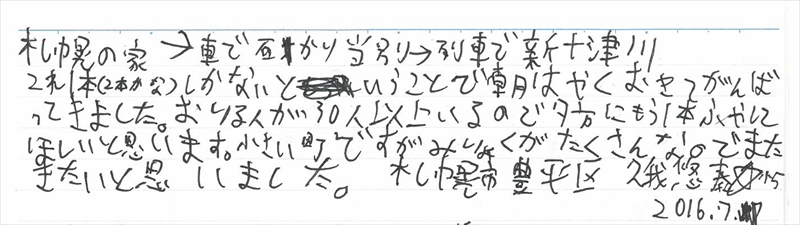 札幌の家→車で石かり当別→列車で新十津川
これ1本(2本かな)しかないということで朝はやくおきてがんば
ってきました。おりる人が30人以上いるので夕方にもう1本ふやして
ほしいと思います。小さい町ですがみりょくがたくさんなのでまた
きたいと思いました。 札幌市豊平区
2016.7.